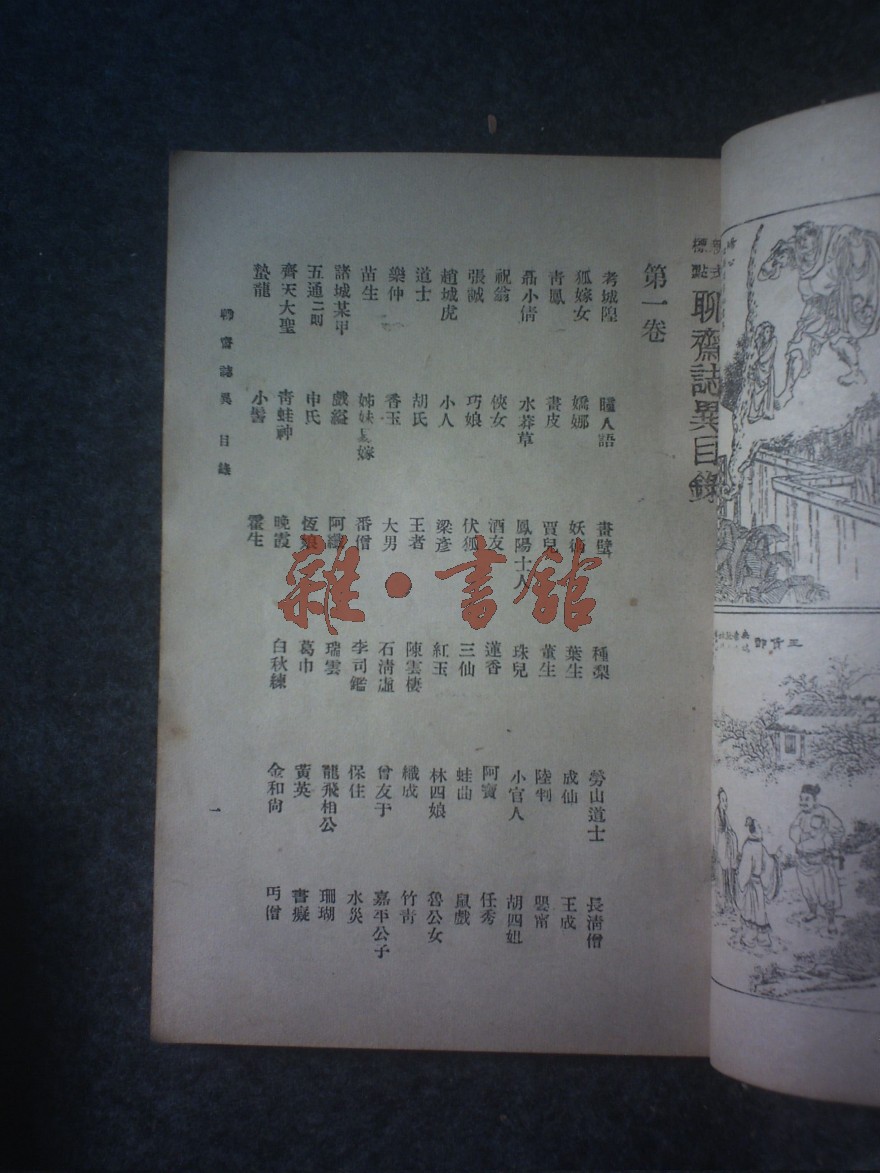 標點
聊齋誌異目錄
第一卷
考城隍 瞳人語 畫壁 種梨 勞山道士 長清僧
狐嫁女 嬌娜 妖術 葉生 成仙 王成
青鳳 畫皮 賈兒 董生 陸判 嬰甯
聶小倩 水莽草 鳳陽士人 珠兒 小官人 胡四姐
祝翁 俠女 酒友 蓮香 阿寶 任秀
張誠 巧娘 伏狐 三仙 蛙曲 鼠戲
趙城虎 小人 梁彥 紅玉 林四娘 魯公女
道士 胡氏 王者 陳雲棲 織成 竹青
樂仲 香玉 大男 石清虛 曾友于 嘉平公子
苗生 姊妹易嫁 番僧 李司鑑 保住 水災
諸城某甲 戲縊 阿纖 瑞雲 龍飛相公 珊瑚
五通二則 申氏 恆娘 葛巾 黃英 書癡
齊天大聖 青蛙神 晚霞 白秋練 金和尚 丐僧
蟄龍 小髻 霍生
聊齋誌異 目錄
一
雜·書館